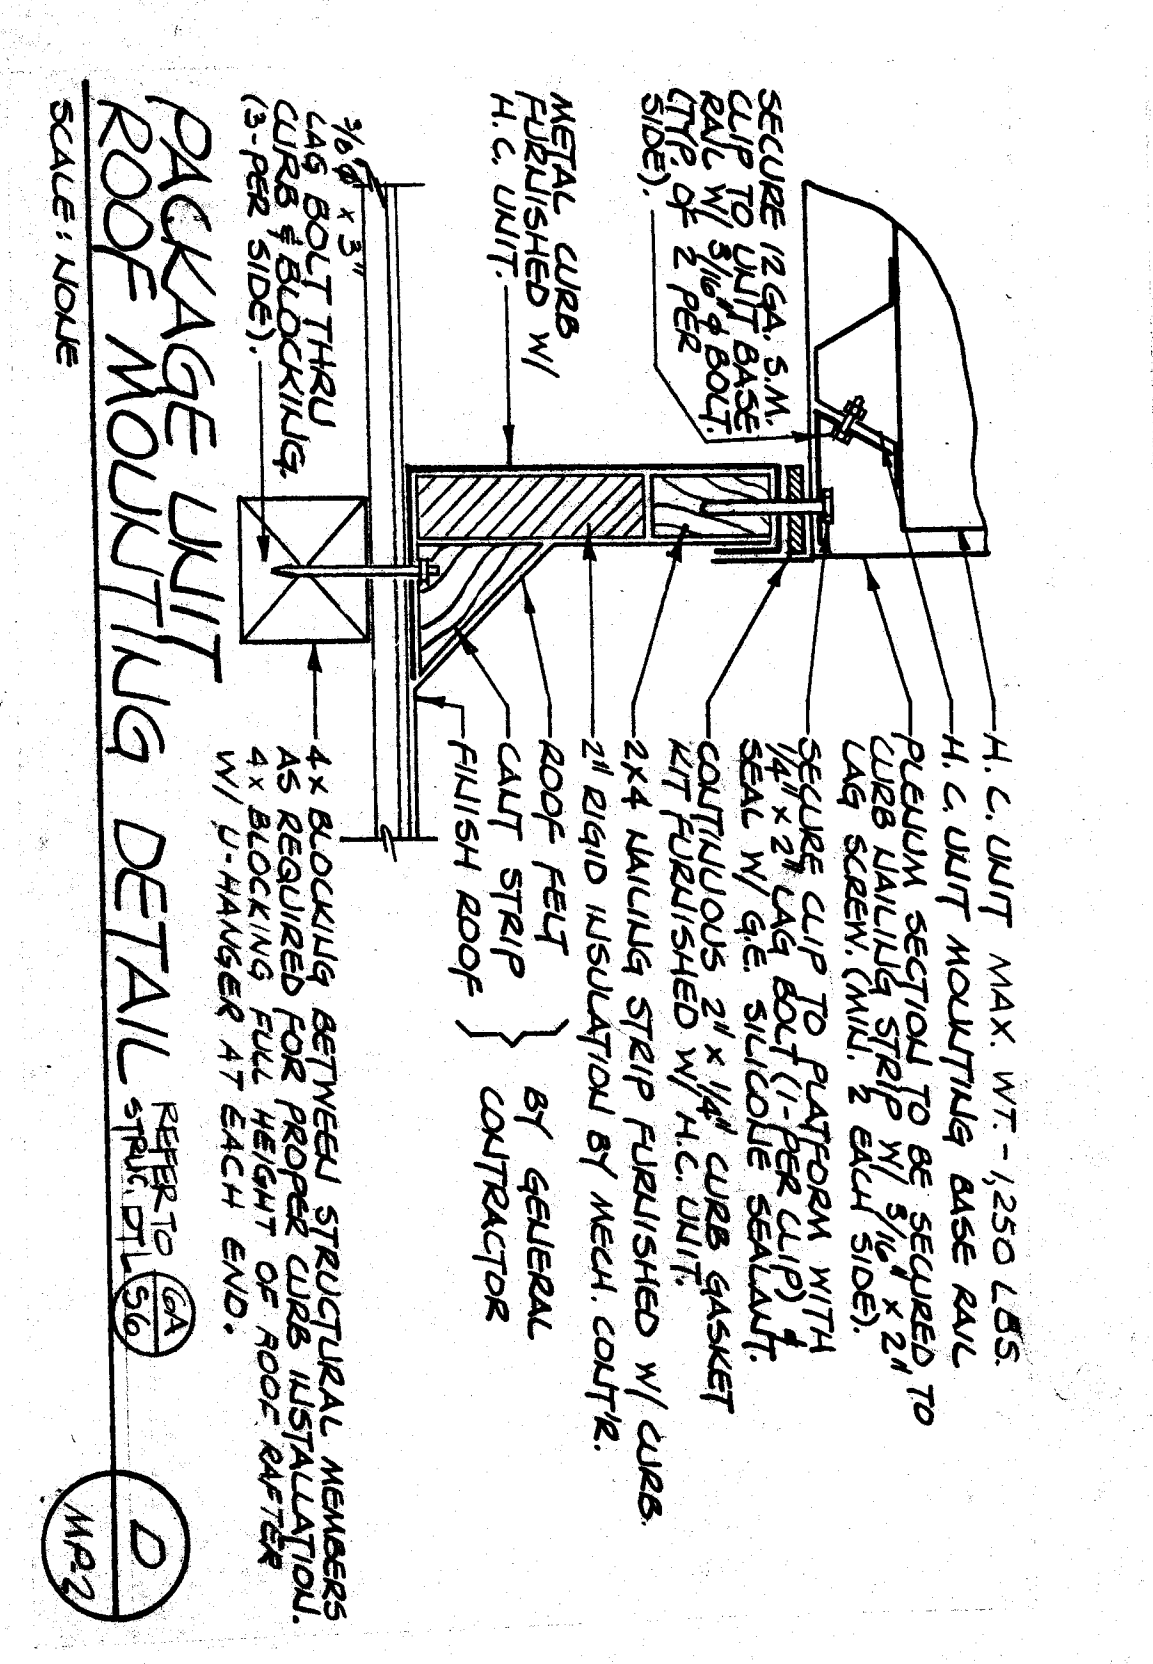 H.C. UNIT MAX. WT. - 1,250 LBS.
H.C. UNIT MOUNTING BASE RAIL
PLENUM SECTION TO BE SECURED TO
CURB NAILING STRIP W/ 3/16" x 2"
LAG SCREW. (MIN. 2 EACH SIDE).
SECURE CLIP TO PLATFORM WITH
1/4" x 2" LAG BOLT (1-PER CLIP) &
SEAL W/ G.E. SILICONE SEALANT.
CONTINUOUS 2" x 1/4" CURB GASKET
KIT FURNISHED W/ H.C. UNIT.
2x4 NAILING STRIP FURNISHED W/ CURB.
2" RIGID INSULATION BY MECH. CONT'R.
ROOF FELT
CANT STRIP
FINISH ROOF
BY GENERAL
CONTRACTOR
4x BLOCKING BETWEEN STRUCTURAL MEMBERS
AS REQUIRED FOR PROPER CURB INSTALLATION.
4x BLOCKING FULL HEIGHT OF ROOF RAFTER
W/ U-HANGER AT EACH END.
SECURE 12 GA. S.M.
CLIP TO UNIT BASE
RAIL W/ 3/16" φ BOLT.
(TYP. OF 2 PER
SIDE).
METAL CURB
FURNISHED W/
H.C. UNIT.
φ x 3"
LAG BOLT THRU
CURB & BLOCKING.
(3-PER SIDE).
PACKAGE UNIT
ROOF MOUNTING DETAIL
SCALE: NONE
REFER TO
STRUC. DTL
6A
S6
D
MP-2